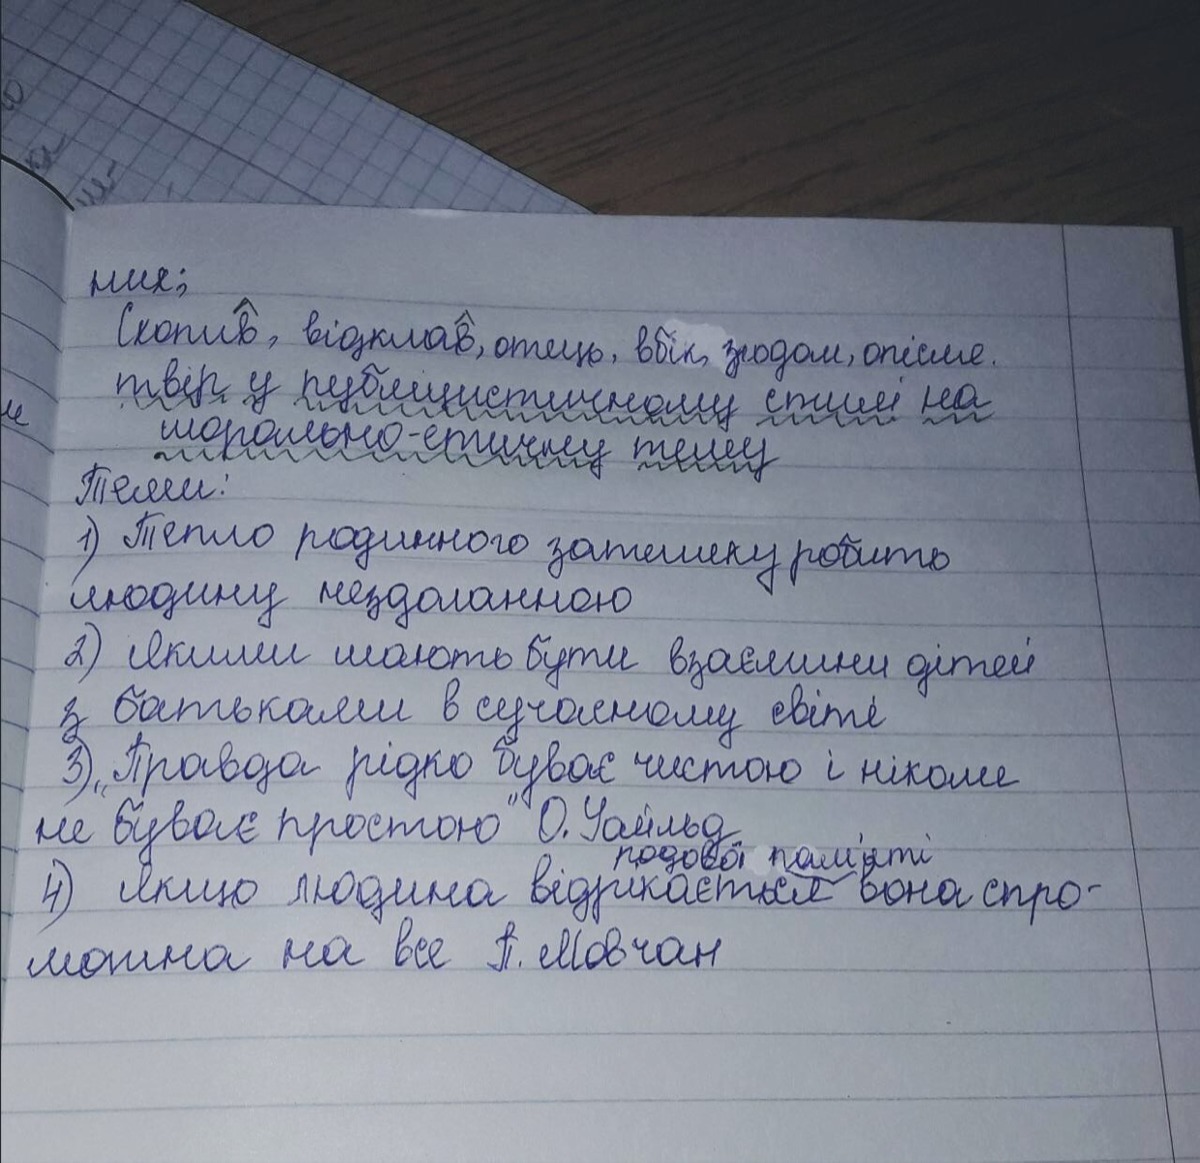 них;
Схопив, відклав, отець, вбік, згодом, опісля.
твір у публіцистичному стилі на
морально-етичну тему
Теми:
1) Тепло родинного затишку робить
людину нездоланною
2) Якими мають бути взаємини дітей
з батьками в сучасному світі
3) „Правда рідко буває чистою і ніколи
не буває простою" О. Уайльд
родової пам'яті
4) Якщо людина відрікається вона спро-
можна на все П. Мовчан